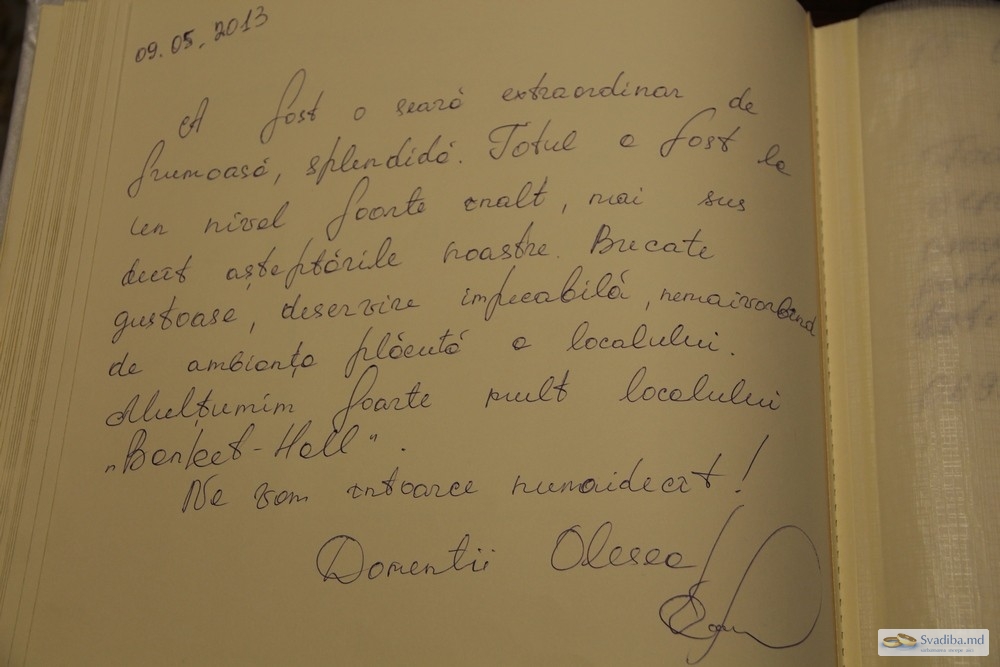 09.05.2013
A fost o seară extraordinar de
frumoasă, splendidă. Totul a fost la
un nivel foarte înalt, mai sus
decît așteptările noastre. Bucate
gustoase, deservire impecabilă, nemaivorbind
de ambianța plăcută a localului.
Mulțumim foarte mult localului
„Banket-Hall".
Ne vom întoarce numaidecît!
Domentii Olesea
Svadiba.md